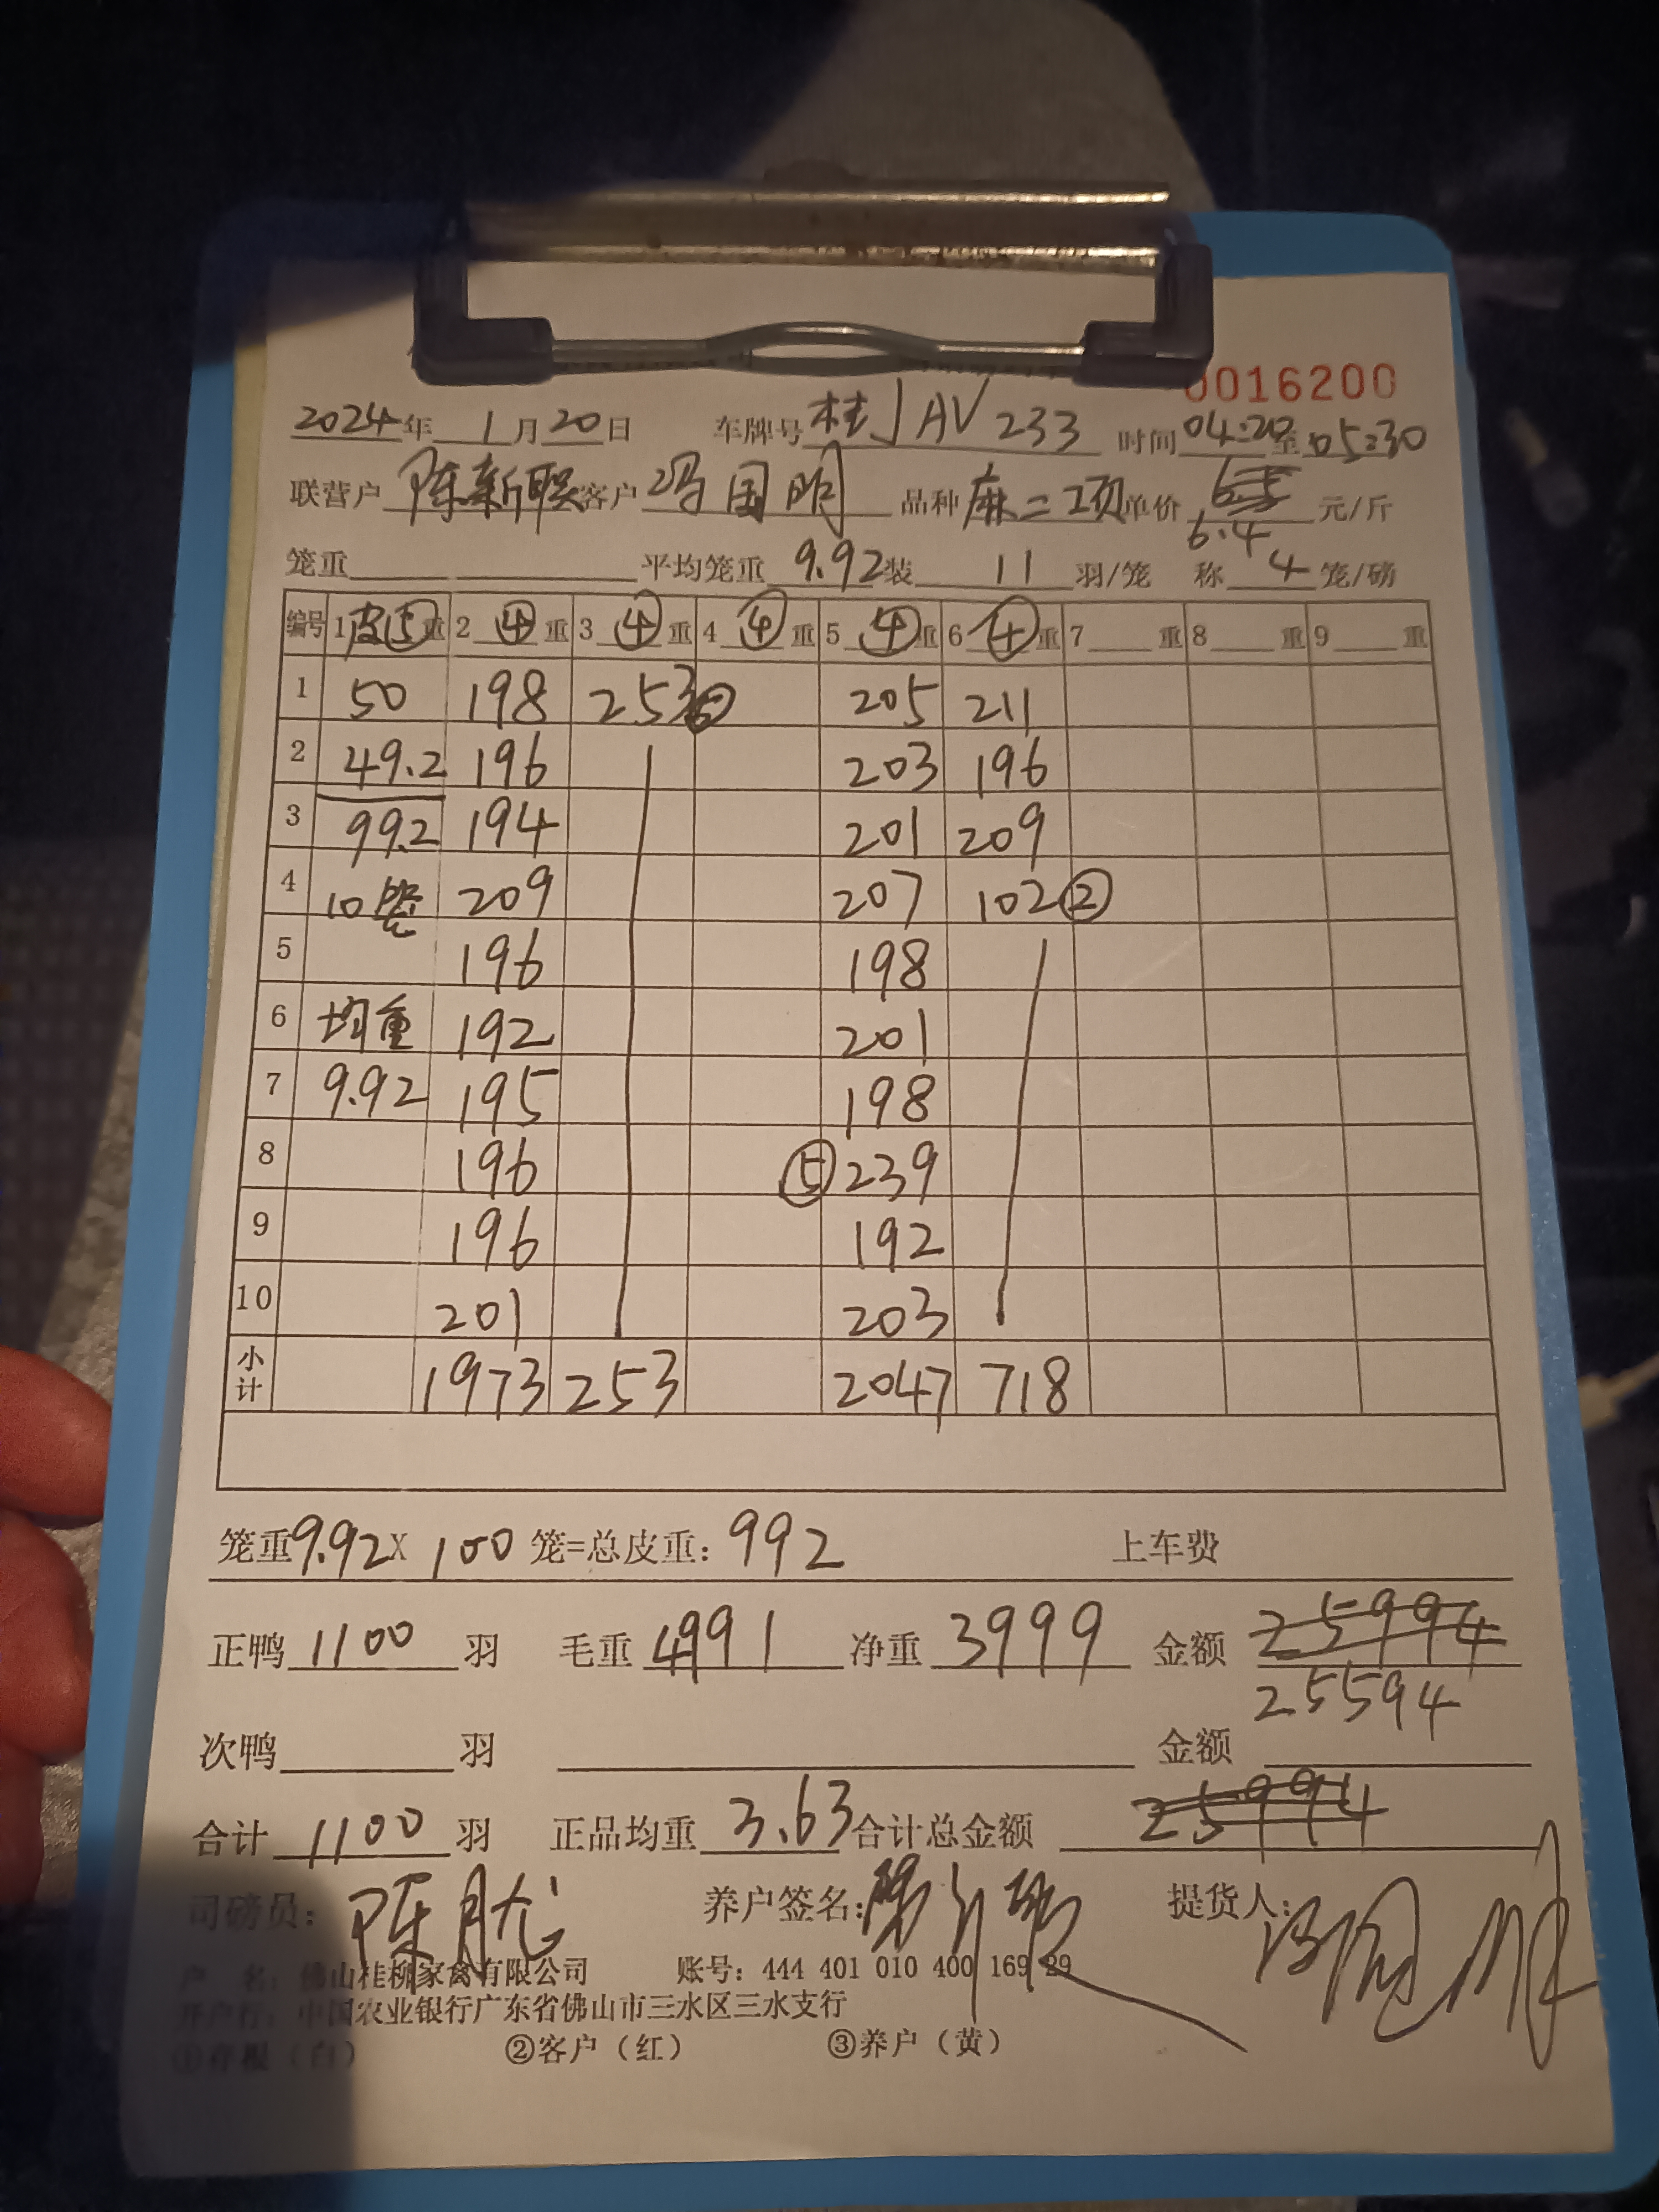 0016200
2024年 1月20日 车牌号桂JAV233 时间04:20至05:30
联营户 陈新联 客户 冯国明 品种 麻二项 单价 6.5 元/斤
6.4
笼重 平均笼重 9.92 装 11 羽/笼 称 4 笼/磅
编号 1 皮⑤重 2 ④ 重 3 ④ 重 4 ④ 重 5 ④ 重 6 ④ 重 7 重 8 重 9 重
1 50 198 253 205 211
2 49.2 196 203 196
3 99.2 194 201 209
4 10笼 209 207 102②
5 196 198
6 均重 192 201
7 9.92 195 198
8 196 ⑤239
9 196 192
10 201 203
小计 1973 253 2047 718
笼重9.92X 100 笼=总皮重: 992 上车费
正鸭 1100 羽 毛重 4991 净重 3999 金额 25994
25594
次鸭 羽 金额
合计 1100 羽 正品均重 3.63 合计总金额 25994
司磅员: 陈 养户签名: 提货人:
户 名: 佛山桂柳家禽有限公司 账号: 444 401 010 400 169 29
开户行: 中国农业银行广东省佛山市三水区三水支行
①存根（白） ②客户（红） ③养户（黄）